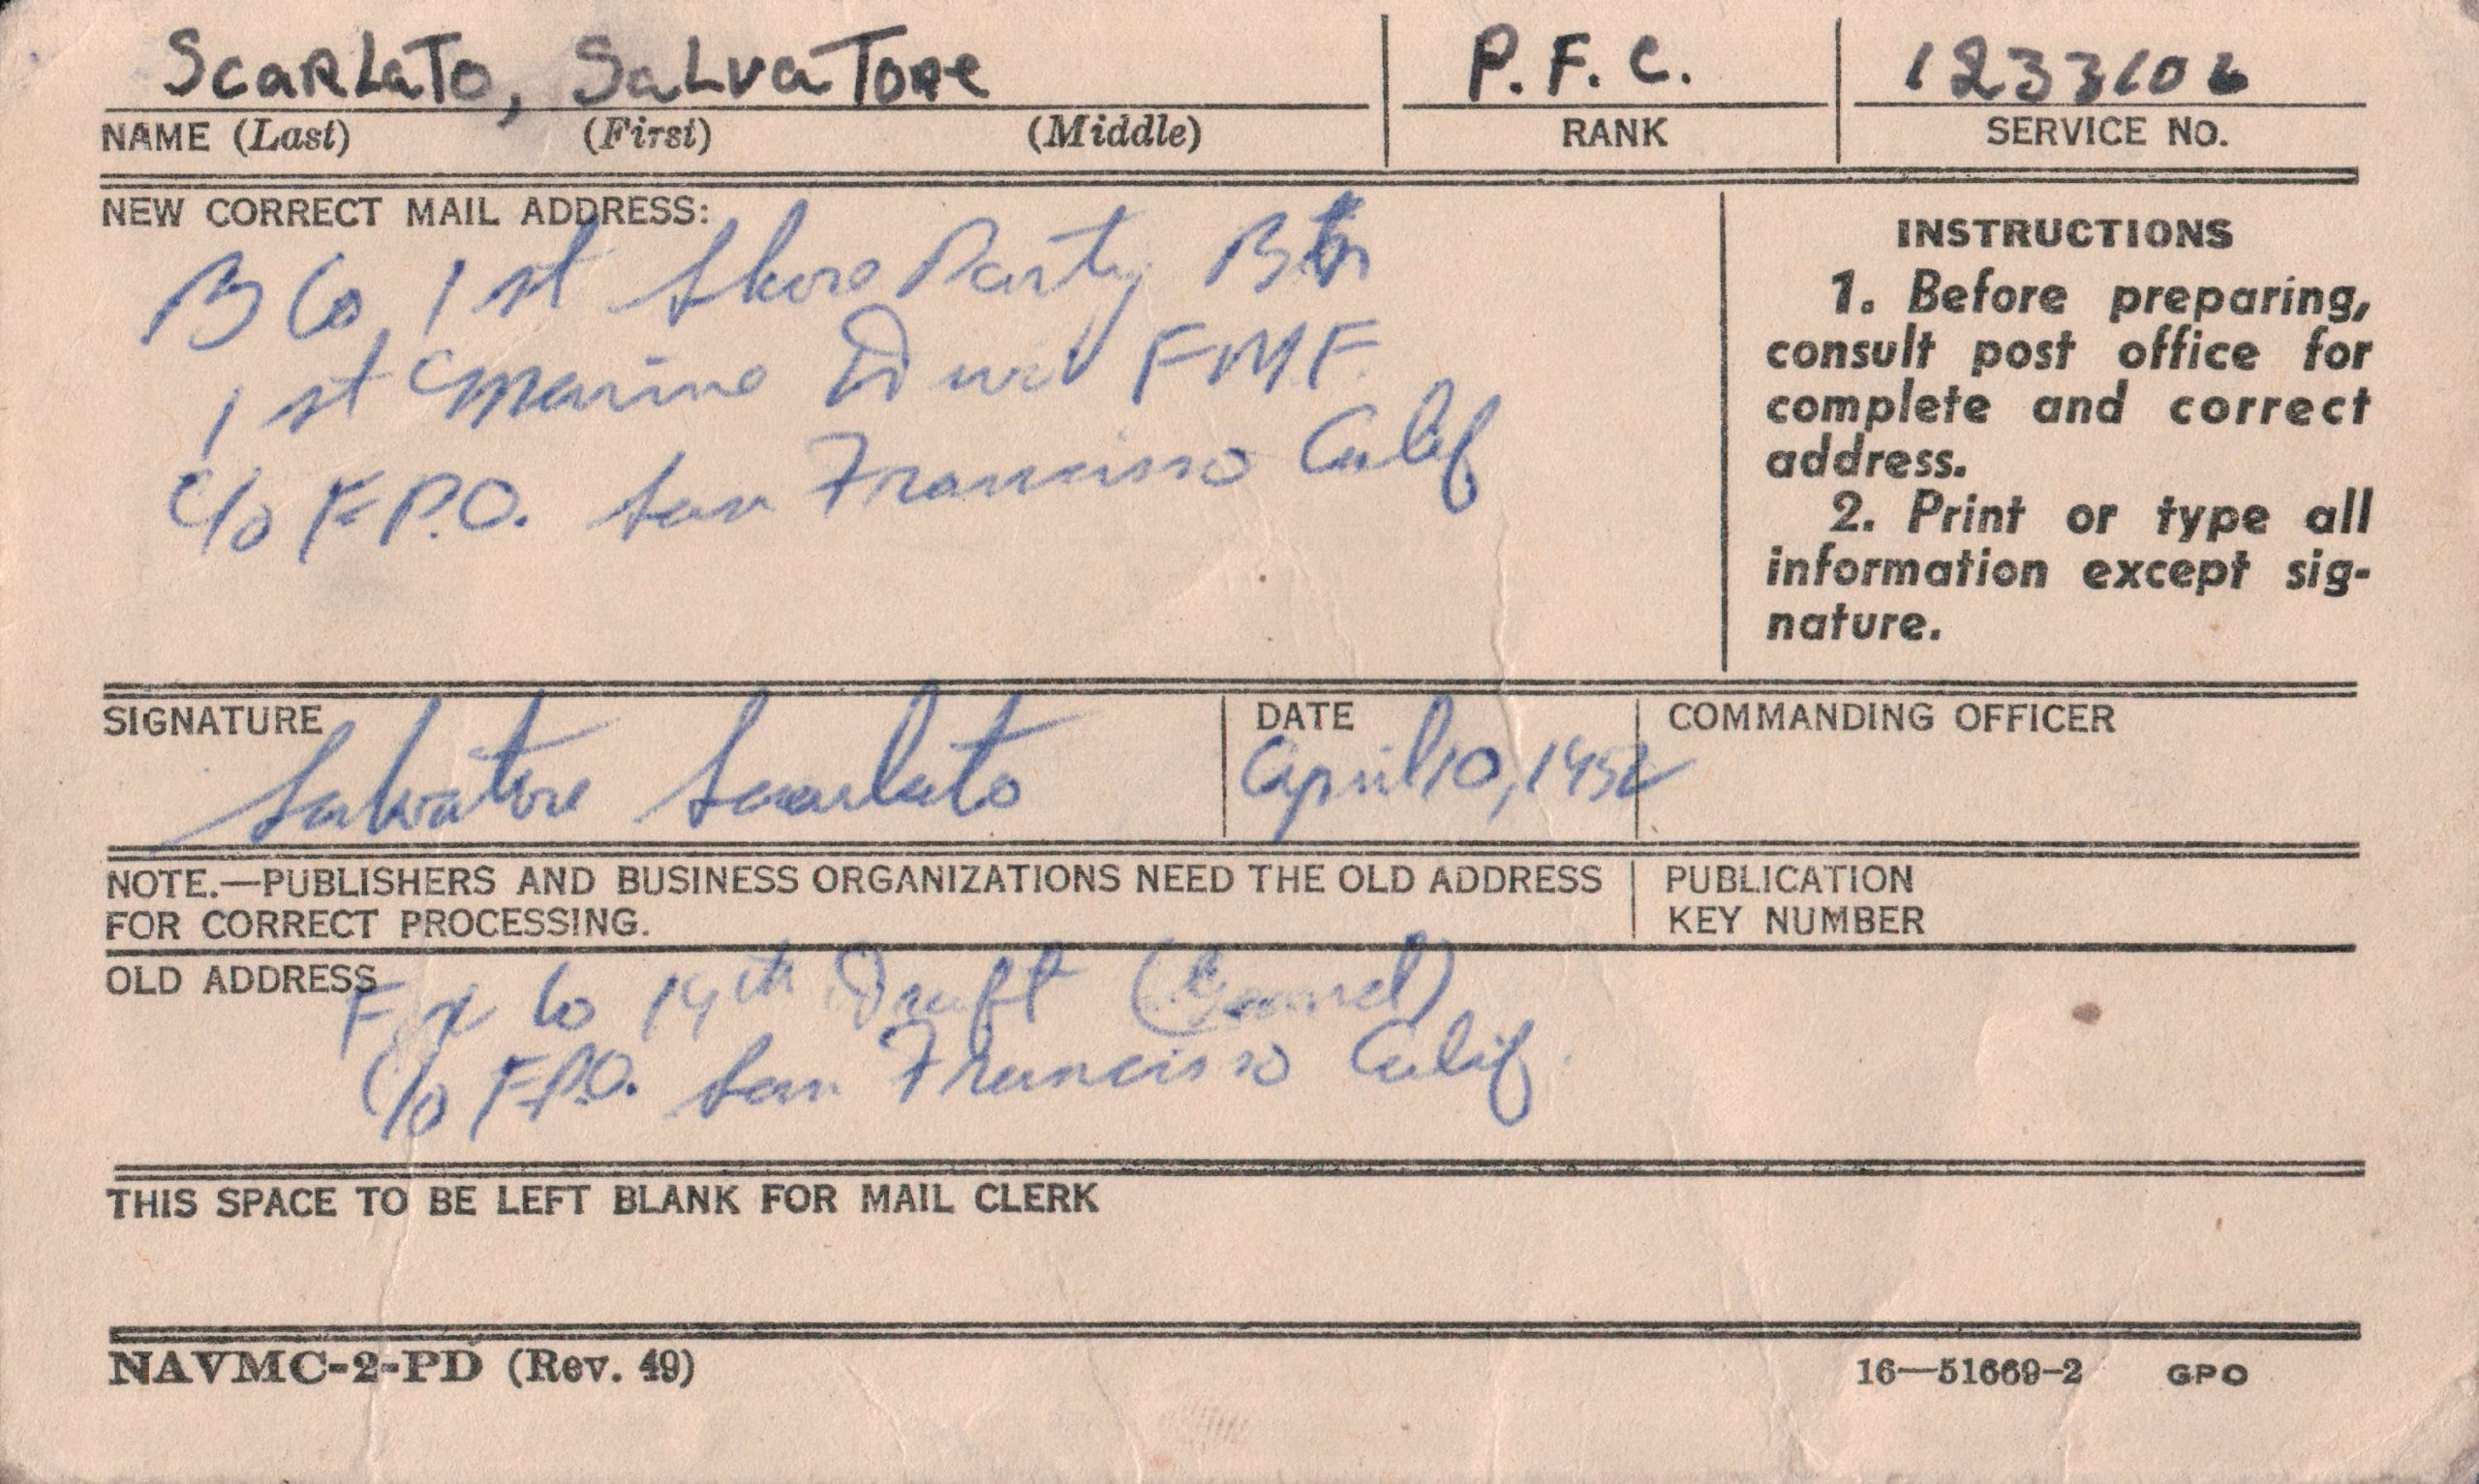 Scarlato, Salvatore P.F.C. 1233106
NAME (Last) (First) (Middle) RANK SERVICE No.
NEW CORRECT MAIL ADDRESS:
B Co, 1st Shore Party Btn
1st Marine Div F.M.F.
c/o F.P.O. San Francisco Calif
INSTRUCTIONS
1. Before preparing,
consult post office for
complete and correct
address.
2. Print or type all
information except sig-
nature.
SIGNATURE DATE COMMANDING OFFICER
Salvatore Scarlato April 10, 1952
NOTE.—PUBLISHERS AND BUSINESS ORGANIZATIONS NEED THE OLD ADDRESS
FOR CORRECT PROCESSING.
PUBLICATION
KEY NUMBER
OLD ADDRESS
Co 19th Draft
c/o F.P.O. San Francisso Calif.
THIS SPACE TO BE LEFT BLANK FOR MAIL CLERK
NAVMC-2-PD (Rev. 49) 16—51669-2 GPO